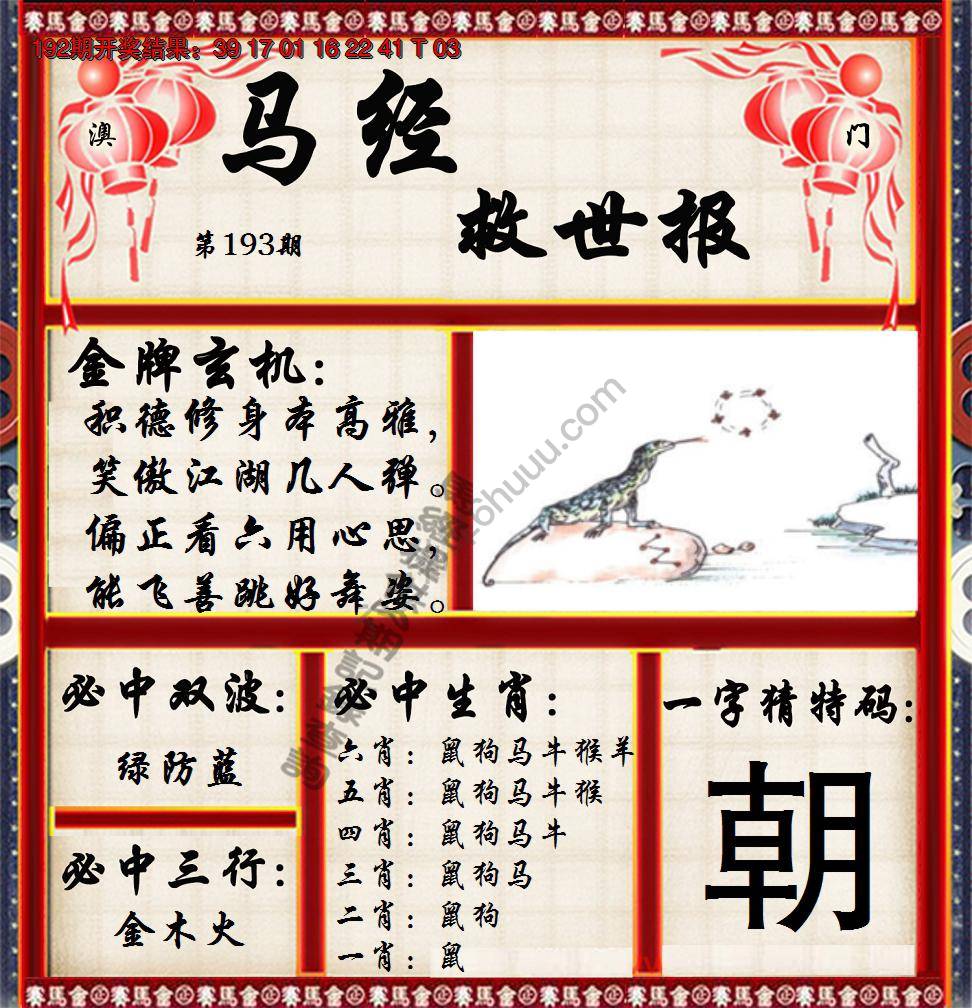 192期开奖结果：39 17 01 16 22 41 T 03
澳
门
马经
救世报
第193期
金牌玄机：
积德修身本高雅，
笑傲江湖几人弹。
偏正看六用心思，
能飞善跳好舞姿。
必中双波：
绿防蓝
必中三行：
金木火
必中生肖：
六肖：鼠狗马牛猴羊
五肖：鼠狗马牛猴
四肖：鼠狗马牛
三肖：鼠狗马
二肖：鼠狗
一肖：鼠
一字猜特码：
朝